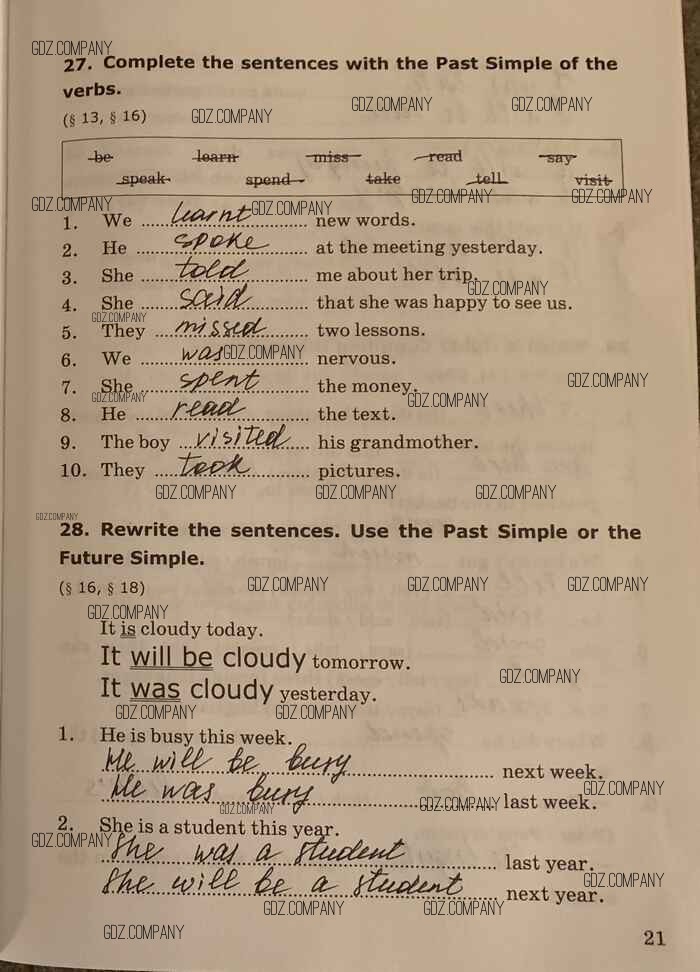 GDZ.COMPANY
27. Complete the sentences with the Past Simple of the
verbs.
GDZ.COMPANY GDZ.COMPANY
(§ 13, § 16) GDZ.COMPANY
be learn miss read say
speak spend take tell visit
GDZ.COMPANY GDZ.COMPANY GDZ.COMPANY GDZ.COMPANY
1. We learnt new words.
2. He spoke at the meeting yesterday.
3. She told me about her trip.
GDZ.COMPANY
4. She said that she was happy to see us.
GDZ.COMPANY
5. They missed two lessons.
6. We was nervous.
GDZ.COMPANY
7. She spent the money.
GDZ.COMPANY
GDZ.COMPANY GDZ.COMPANY
8. He read the text.
9. The boy visited his grandmother.
10. They took pictures.
GDZ.COMPANY GDZ.COMPANY GDZ.COMPANY
GDZ.COMPANY
28. Rewrite the sentences. Use the Past Simple or the
Future Simple.
(§ 16, § 18) GDZ.COMPANY GDZ.COMPANY GDZ.COMPANY
GDZ.COMPANY
It is cloudy today.
It will be cloudy tomorrow.
GDZ.COMPANY
It was cloudy yesterday.
GDZ.COMPANY GDZ.COMPANY
1. He is busy this week.
He will be busy next week.
GDZ.COMPANY
He was busy last week.
GDZ.COMPANY GDZ.COMPANY
2. She is a student this year.
GDZ.COMPANY
She was a student last year.
GDZ.COMPANY
She will be a student next year.
GDZ.COMPANY GDZ.COMPANY
GDZ.COMPANY
21